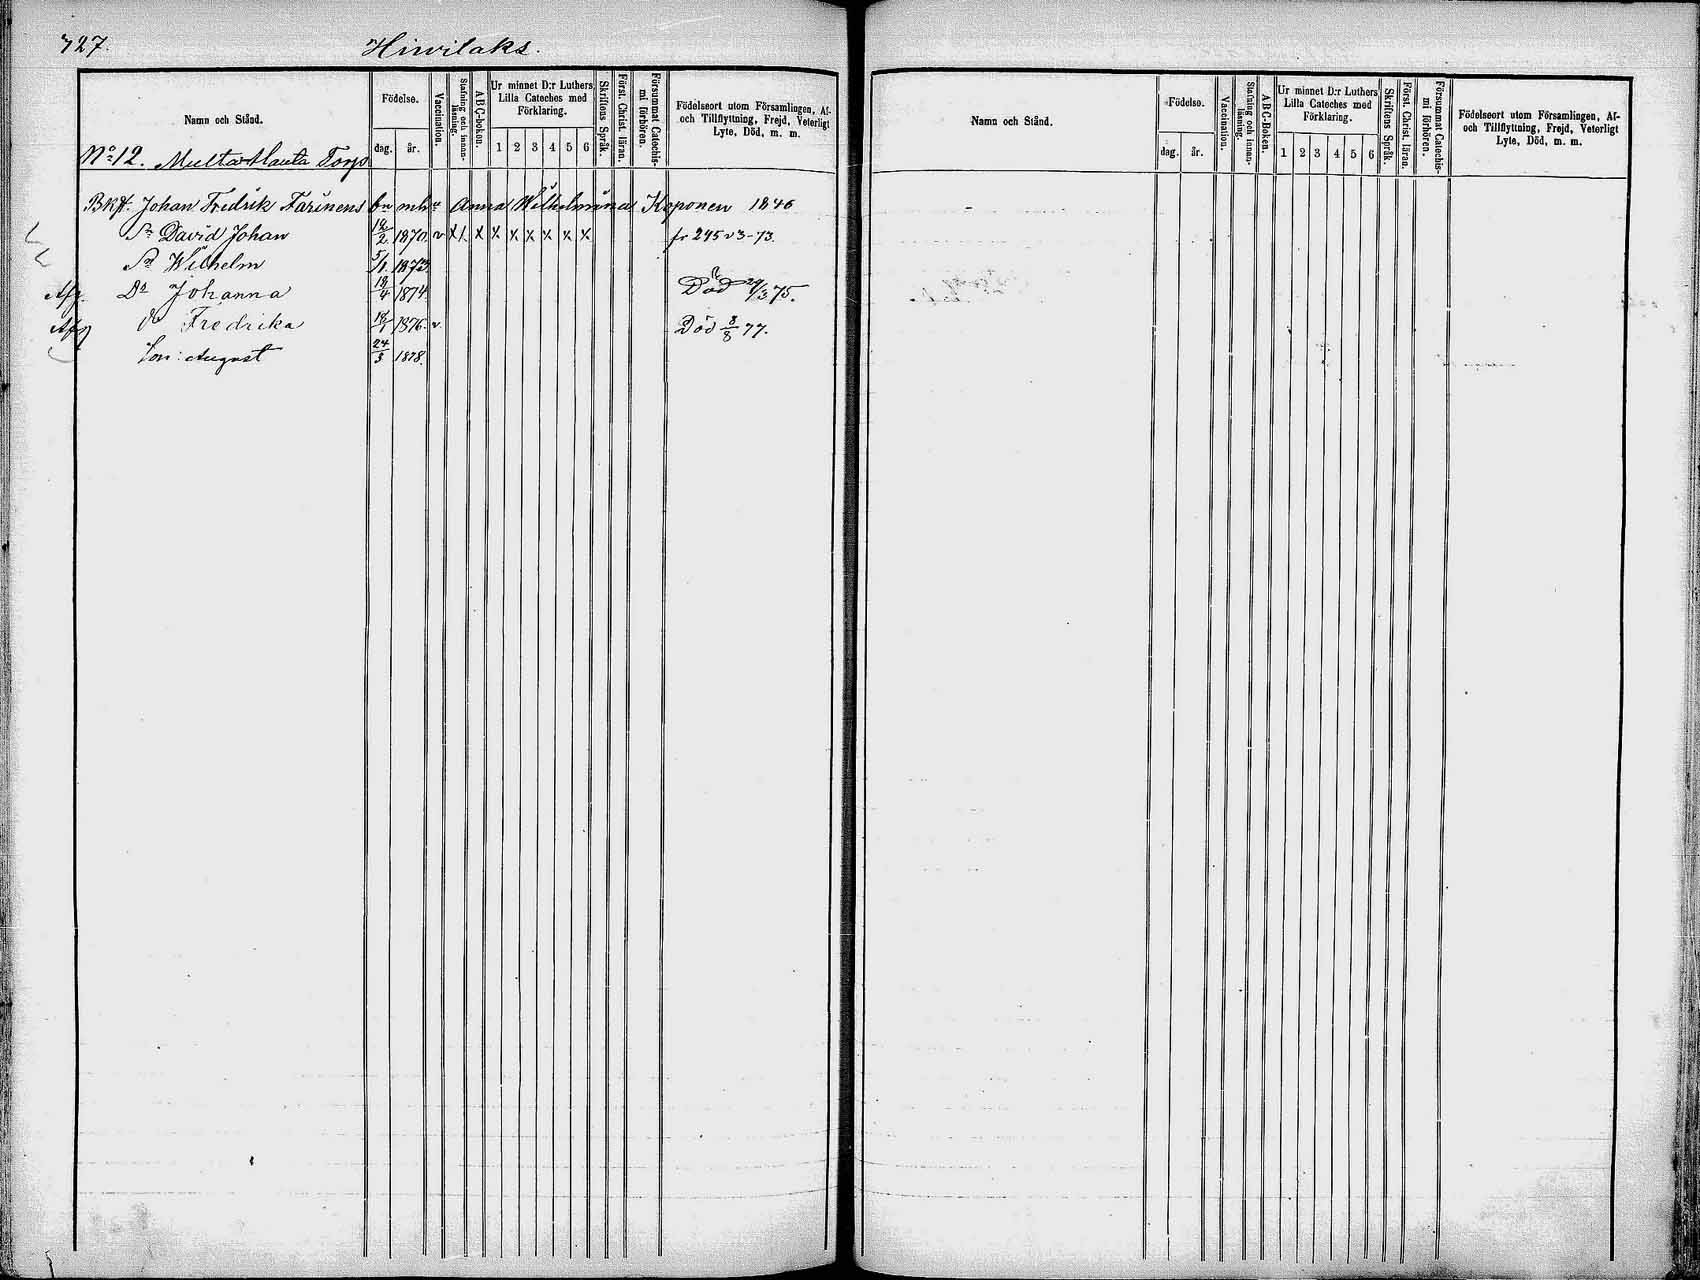 727.
Hirvilaks.
Namn och Stånd.
Födelse.
dag.
år.
Vaccination.
Stafning och innan-läsning.
ABC-boken.
Ur minnet D:r Luthers
Lilla Cateches med
Förklaring.
1 2 3 4 5 6
Skriftens Språk.
Först. Christ. läran.
Försummat Catechis-
mi förhören.
Födelseort utom Församlingen, Af-
och Tillflyttning, Frejd, Veterligt
Lyte, Död, m. m.
No 12. Torp
Johan Fredrik Farinens Anna Wilhelmina Koponen 1846
Sn David Johan 12/2 1870. v x x x x x x x x fr 245 v 3-73.
Sn Wilhelm 5/1. 1873.
Afg. Dr Johanna 19/4 1874. Död 29/3 75.
Afg do Fredrika 18/1 1876. v. Död 8/8 77.
Son: August 24/3 1878.
Namn och Stånd.
Födelse.
dag.
år.
Vaccination.
Stafning och innan-
läsning.
ABC-Boken.
Ur minnet D:r Luthers
Lilla Cateches med
Förklaring.
1 2 3 4 5 6
Skriftens Språk.
Först. Christ. läran.
Försummat Catechis-
mi förhören.
Födelseort utom Församlingen, Af-
och Tillflyttning, Frejd, Veterligt
Lyte, Död, m. m.